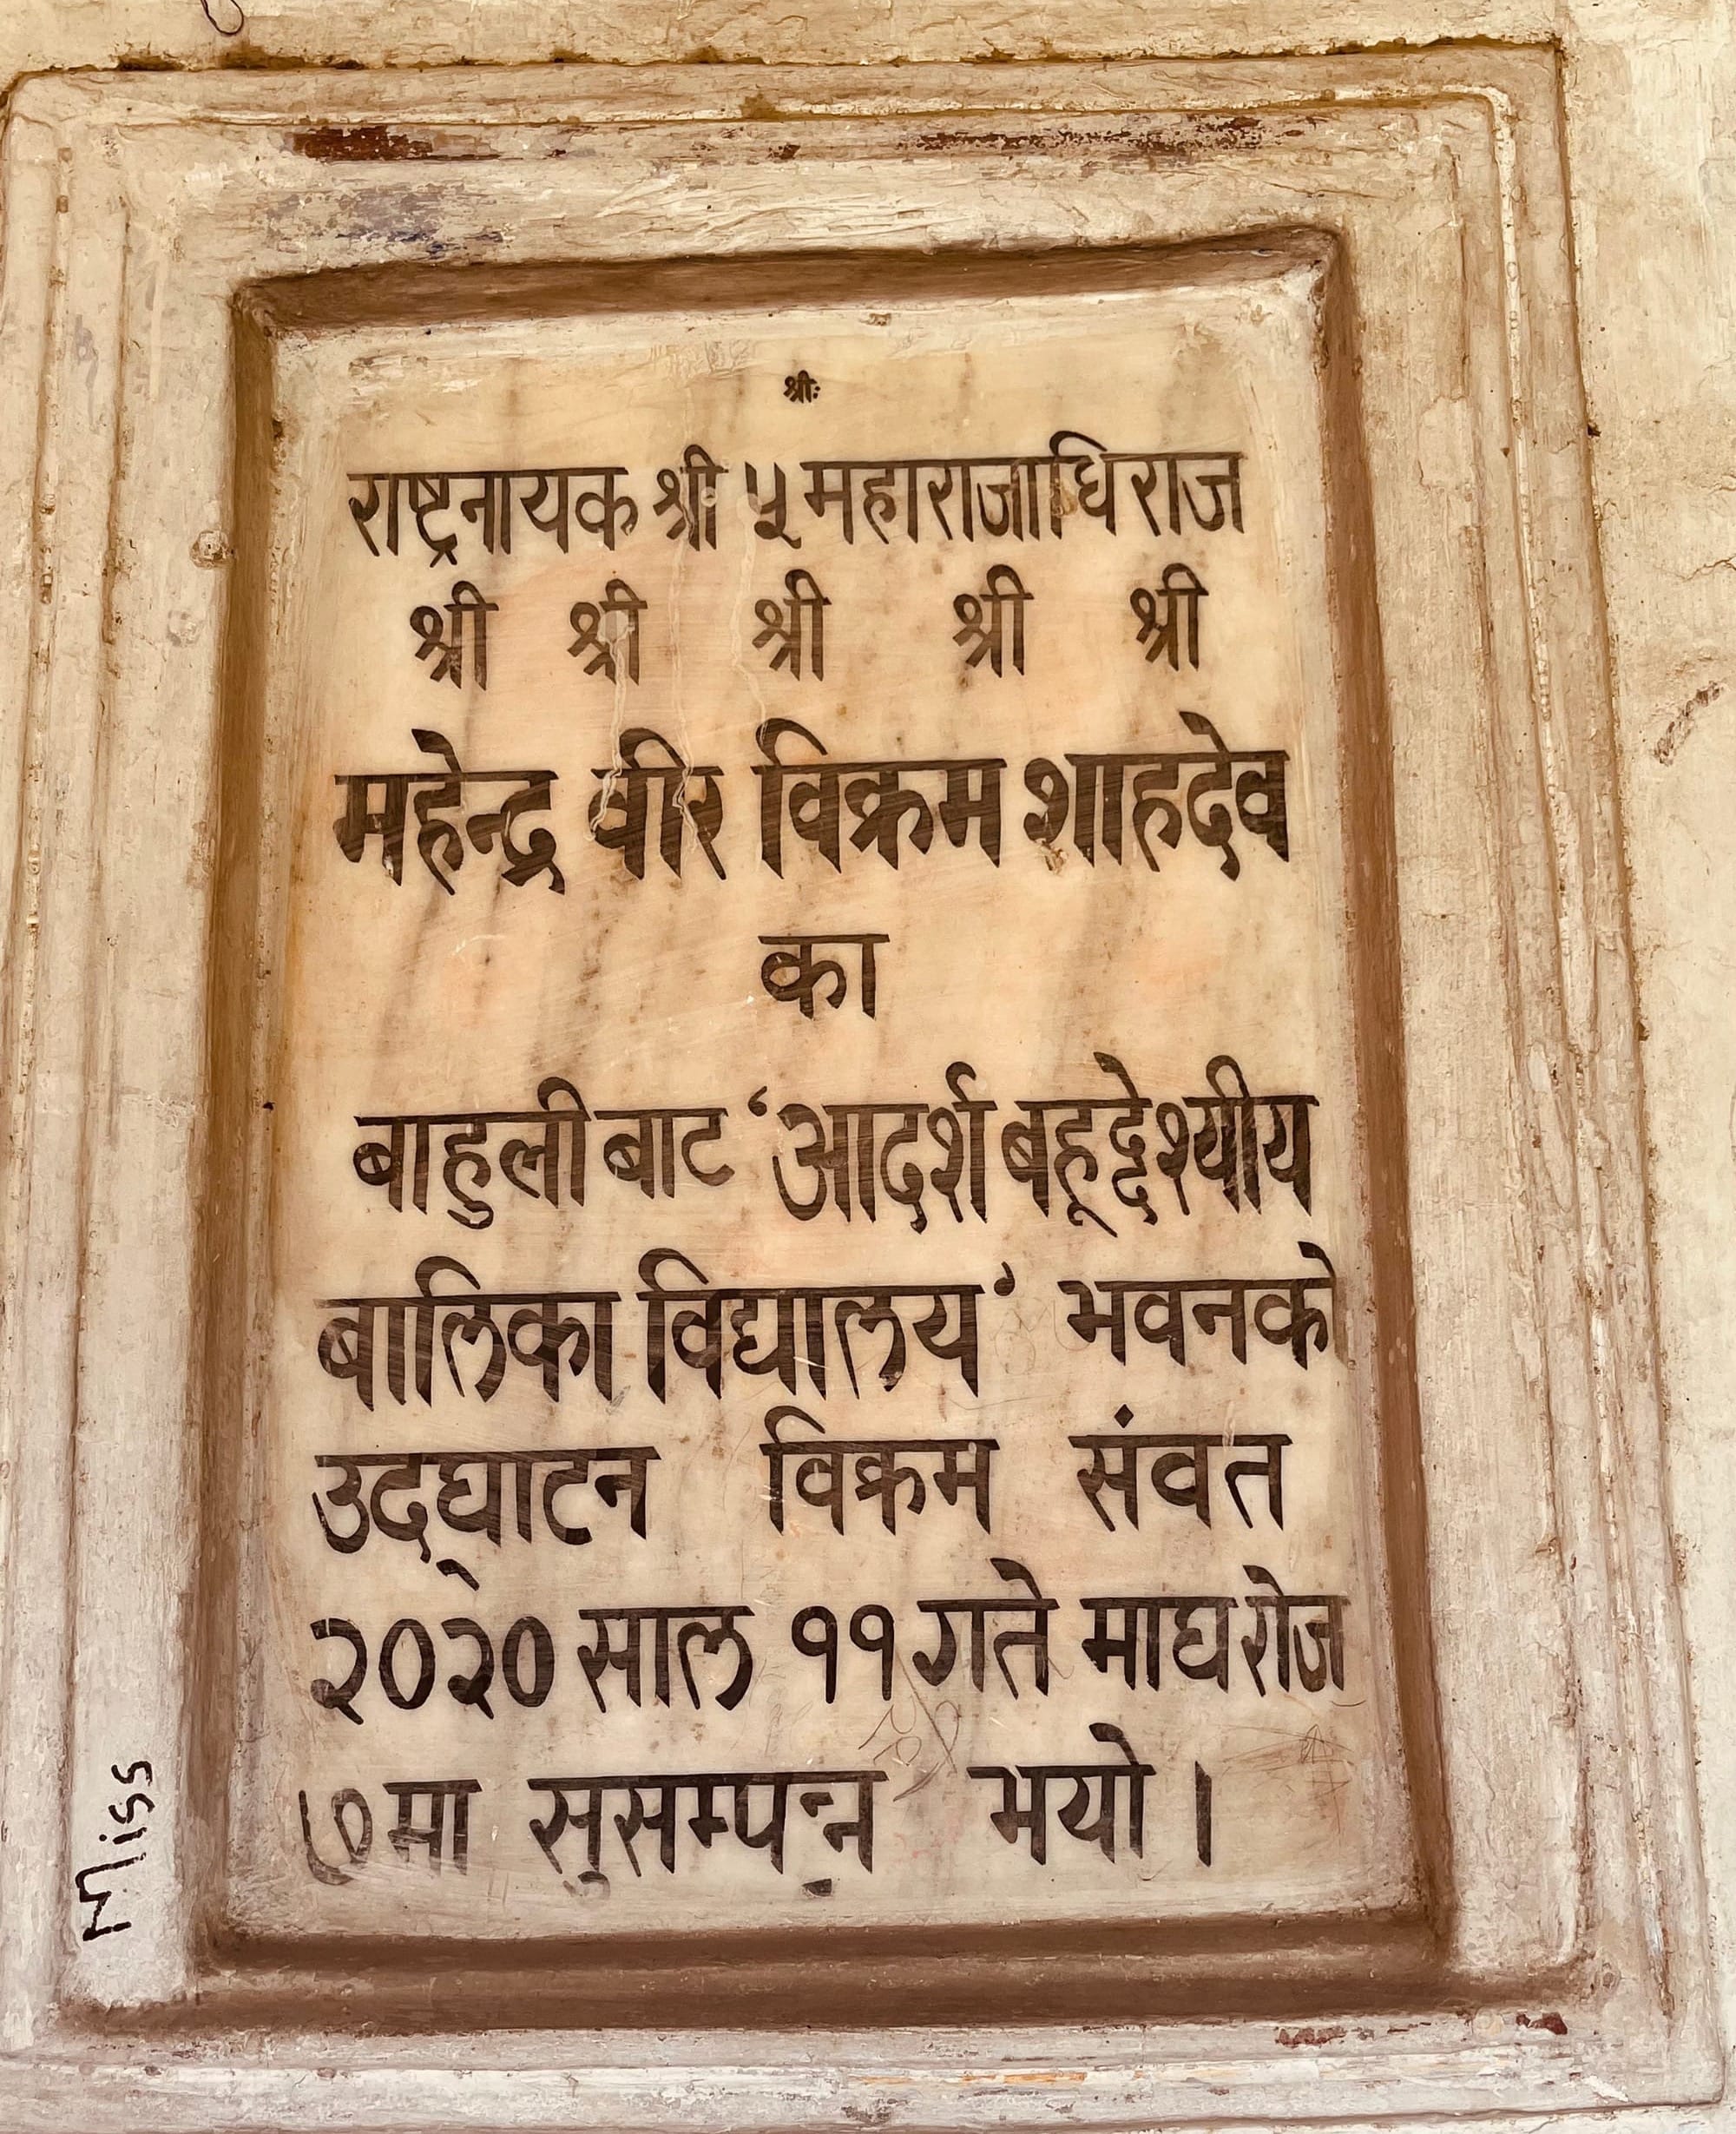 श्रीः
राष्ट्रनायक श्री ५ महाराजाधिराज
श्री श्री श्री श्री श्री
महेन्द्र वीर विक्रम शाहदेव
का
बाहुली बाट ‘आदर्श बहूद्देश्यीय
बालिका विद्यालय’ भवनको
उद्‌घाटन विक्रम संवत
२०२० साल ११ गते माघ रोज
७ मा सुसम्पन्न भयो ।
Miss